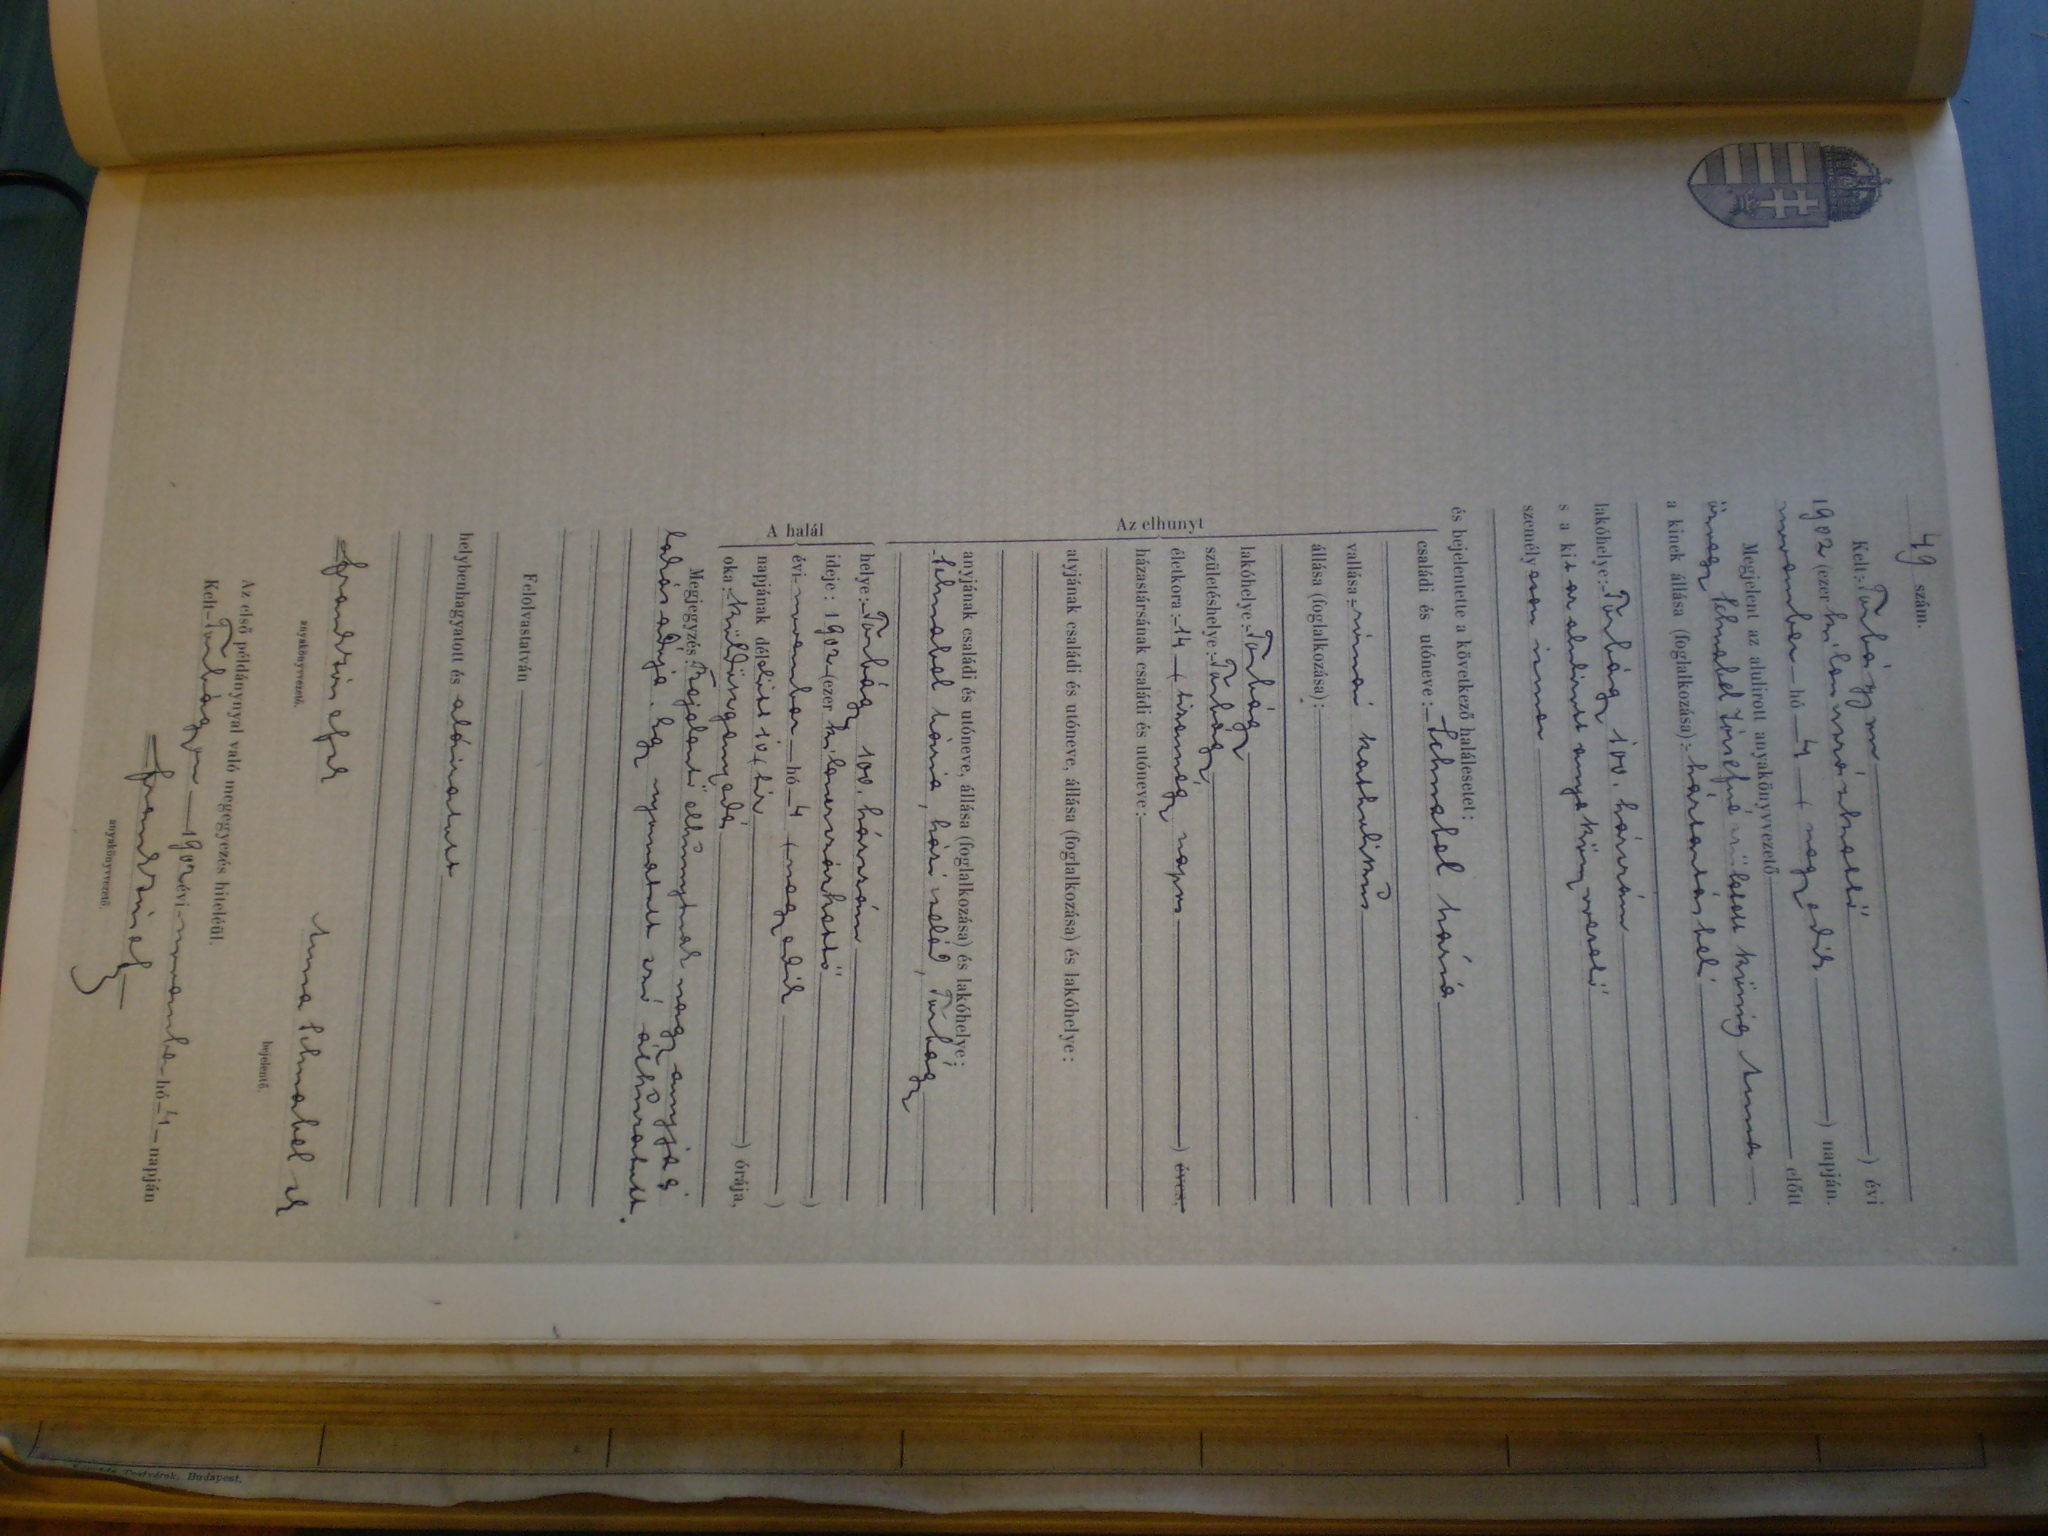 49 szám.
Kelt: Törbágyon ) évi
1902 (ezer kilencszázkettő
november hó 4 ( negyedik ) napján.
Megjelent az alulirott anyakönyvvezető előtt
özvegy Schnabel Józsefné született König Anna
a kinek állása (foglalkozása): háztartásbeli
lakóhelye: Törbágy 100. házszám
s a kit az alulirott anyakönyvvezető
személyesen ismer
és bejelentette a következő halálesetet:
Az elhunyt
családi és utóneve: Schnabel Mária
vallása: római katholikus
állása (foglalkozása):
lakóhelye: Törbágy
születéshelye: Törbágy
életkora: 14 ( tizennégy napos ) éves.
házastársának családi és utóneve:
atyjának családi és utóneve, állása (foglalkozása) és lakóhelye:
anyjának családi és utóneve, állása (foglalkozása) és lakóhelye:
Schnabel Mária, házi cseléd, Törbágy
A halál
helye: Törbágy 100. házszám
ideje: 1902 (ezer kilencszázkettő )
évi november hó 4 ( negyedik )
napjának délelőtt 10 ( tíz ) órája,
oka: veleszületett gyengeség
Megjegyzés: Bejelentő elhunytnak nagyanyja
nyomtatott szó
Felolvastatván
helybenhagyatott és aláiratott
anyakönyvvezető.
Anna Schnabel
bejelentő.
Az első példánynyal való megegyezés hiteléül.
Kelt Törbágyon 1902 évi november hó 4 napján
anyakönyvvezető.
Testvérek, Budapest.